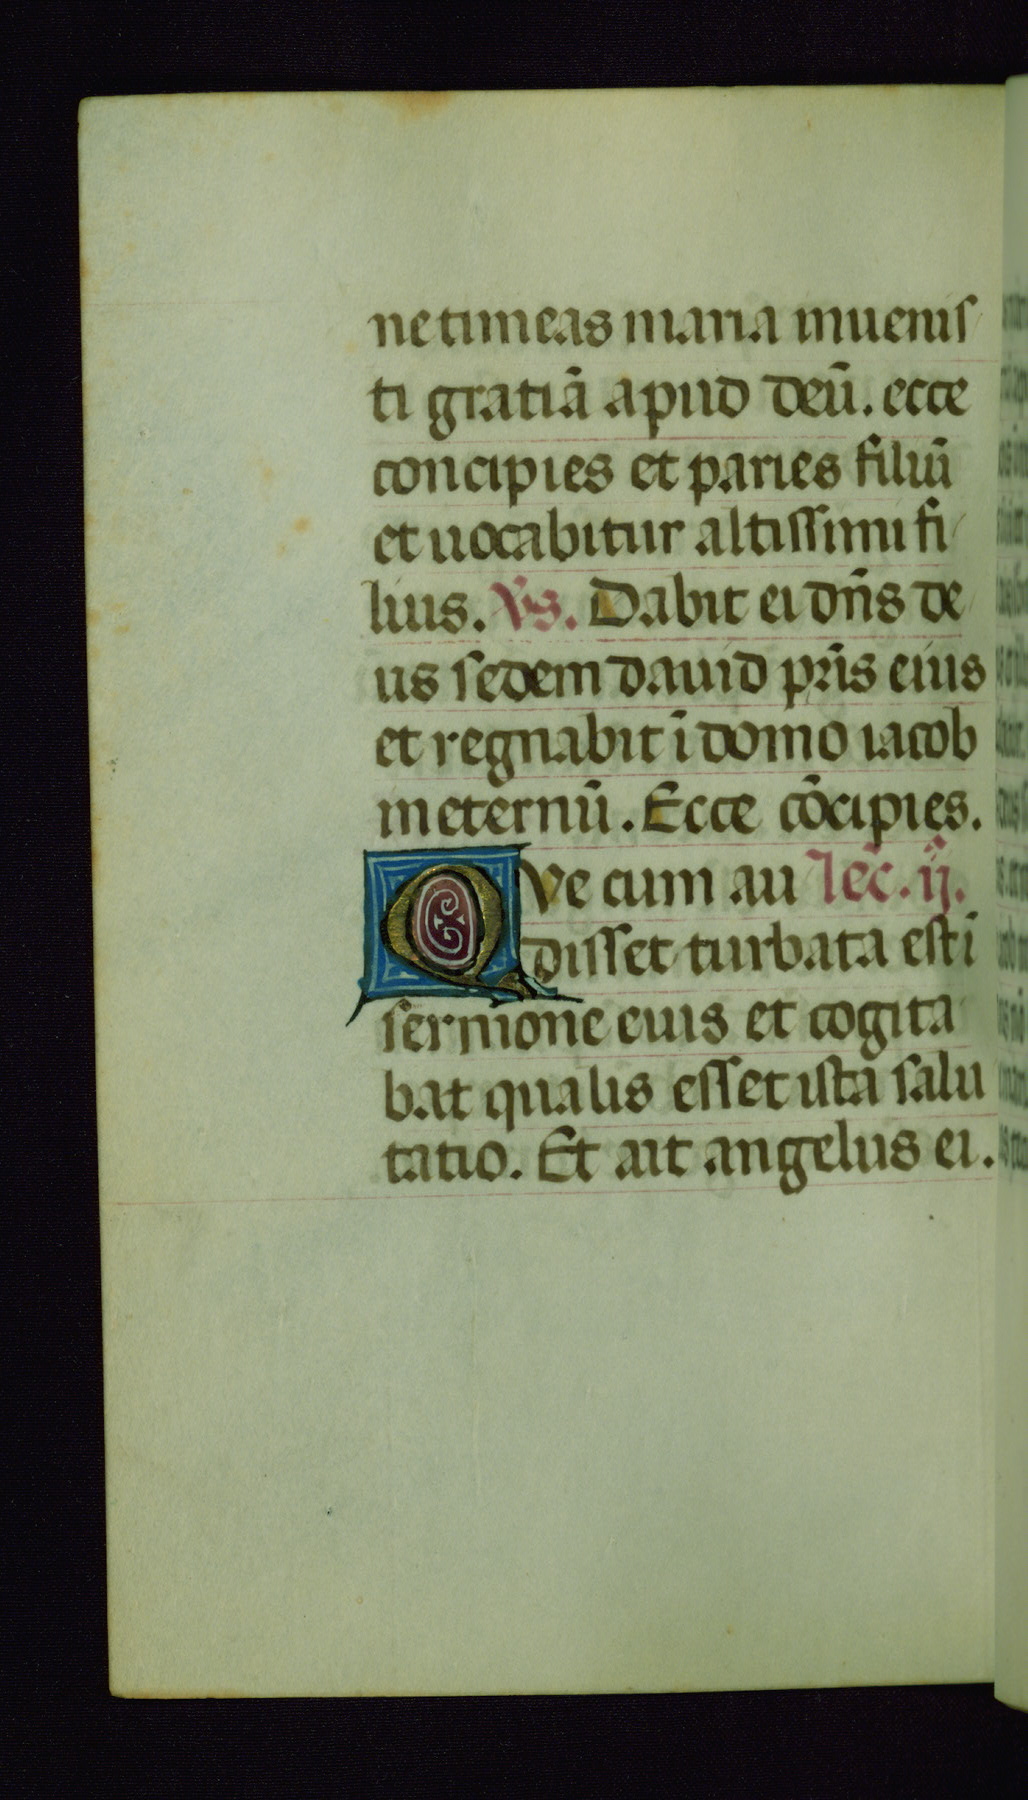 ne timeas maria inuenis
ti gratiā apud deū. ecce
concipies et paries filiū
et uocabitur altissimi fi
lius. Vs. Dabit ei dn̄s de
us sedem dauid pr̄is eius
et regnabit ī domo iacob
in eternū. Ecce cōcipies.
QVe cum au lec̄. ij.
disset turbata est ī
sermone eius et cogita
bat qualis esset ista salu
tatio. Et ait angelus ei.